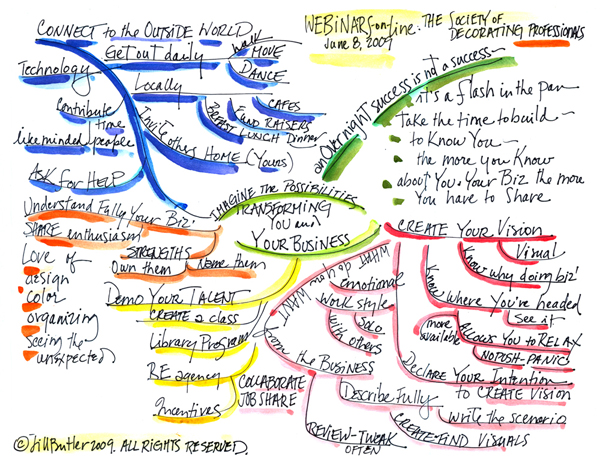 CONNECT to the OUTSIDE WORLD
Get out daily
walk
MOVE
DANCE
Technology
Locally
CAFES
FUND RAISERS
BREAKFAST LUNCH Dinner
Contribute
time
like minded people
Invite others HOME (Yours)
ASK for HELP
WEBINARS on-line
June 8, 2009
THE SOCIETY OF
DECORATING PROFESSIONALS
an OVERnighT success is not a success~
it's a flash in the pan
Take the time to build~
to Know You~
the more you Know
about You & Your Biz the more
You have to Share
IMAGINE the POSSIBILITIES
TRANSFORMING
YOU and
YOUR BUSINESS
Understand Fully Your Biz:
SHARE enthusiasm
STRENGTHS
Own them
Name them
Love of
design
color
organizing
seeing the
unexpected
DEMO YOUR TALENT
CREATE a class
Library Program
RE agency
Incentives
COLLABORATE
JOB SHARE
WHAT do you WANT
from the BUSINESS
emotional
work style
Solo
with others
Describe Fully
Write the scenario
CREATE-FIND VISUALS
REVIEW-TWEAK
OFTEN
CREATE YOUR VISION
Visual
Know why doing biz!
Know Where You're headed
See it
more
available
ALLOWS YOU to RELAX
NO PUSH-PANIC
DECLARE YOUR INTENTION
to CREATE VISION
© Jill Butler 2009. ALL RIGHTS RESERVED.